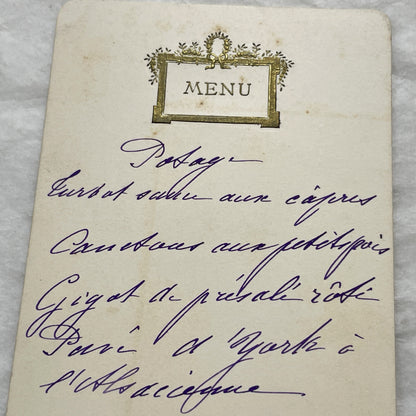 MENU
Potage
Turbot sauce aux câpres
Canetons aux petits pois
Gigot de présalé rôti
Pavé d'York à
l'Alsacienne